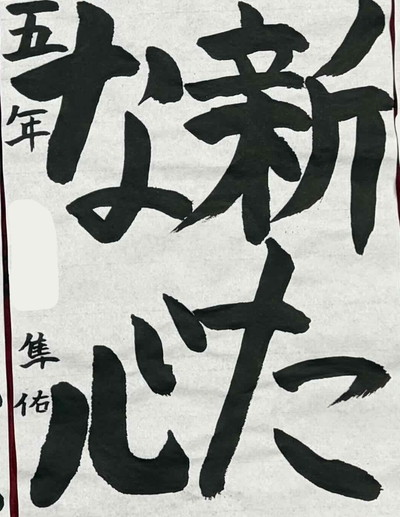 新た
な心
五年 隼佑